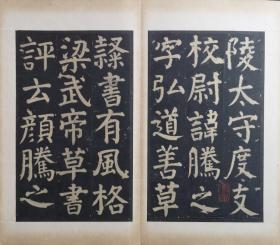 陵太守度支
校尉諱騰之
字弘道善草
隸書有風格
梁武帝草書
評云顏騰之